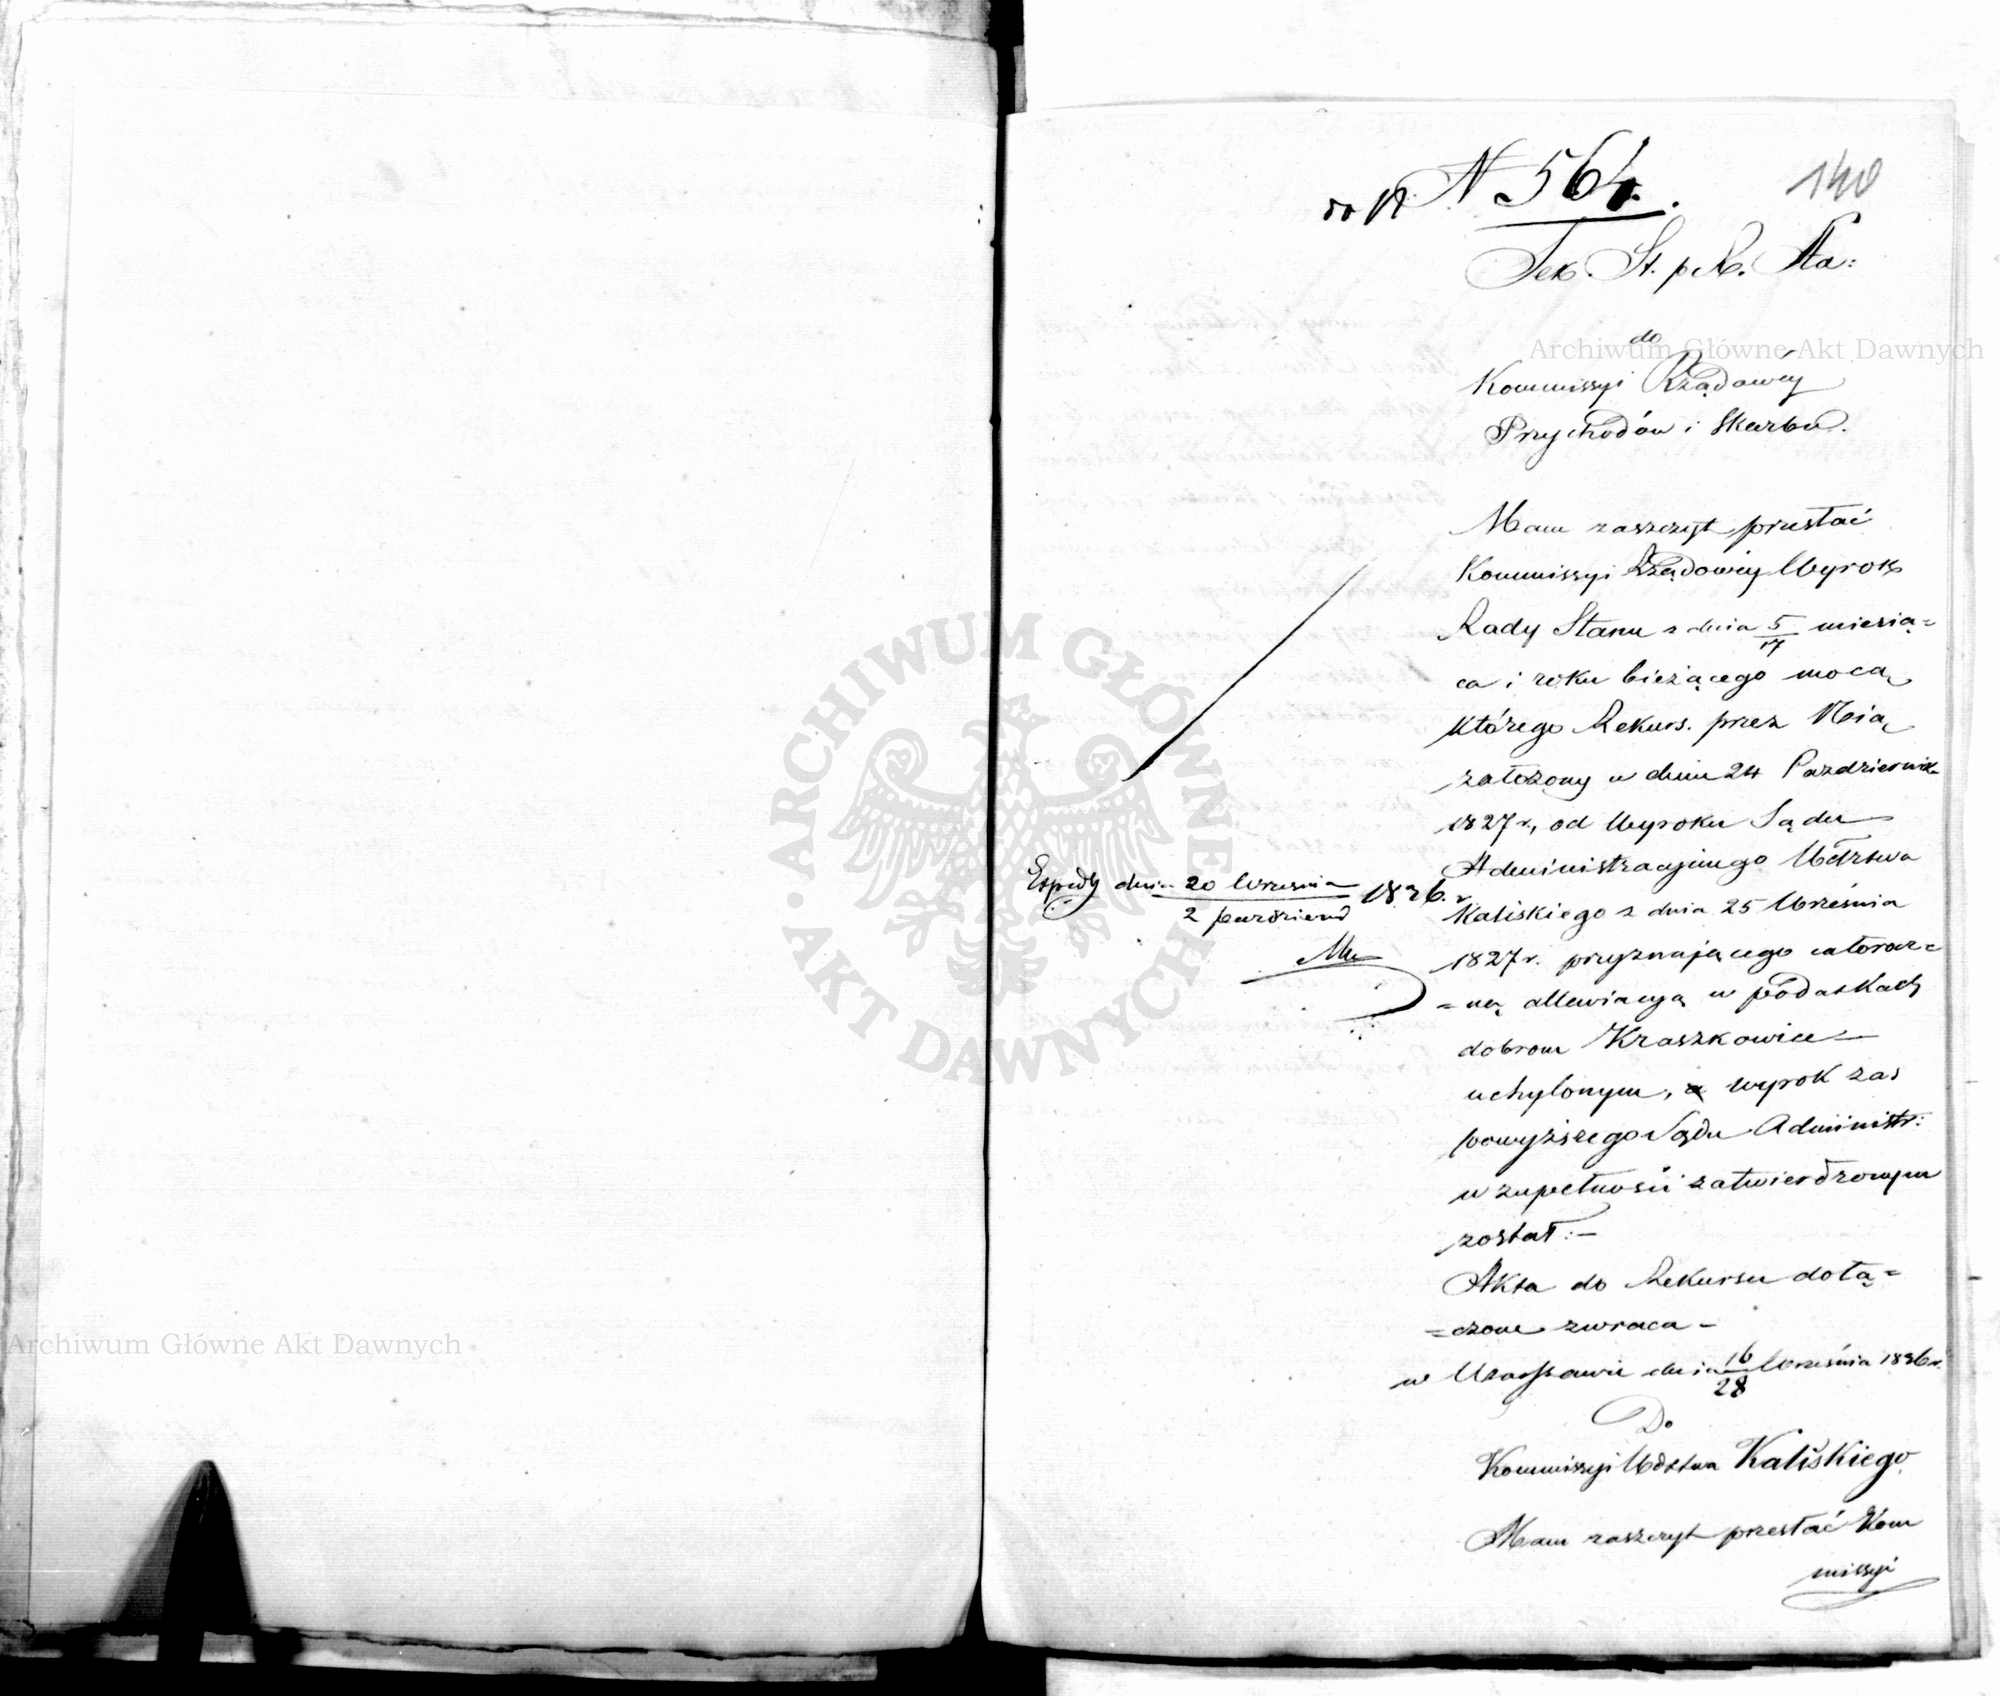 140
do N N 564.
Sek. St. p R. Sta:
do
Kommissyi Rządowéy
Przychodów i Skarbu.
Mam zaszczyt przesłać
Kommissyi Rządowéy Wyrok
Rady Stanu z dnia 5/17 miesią=
ca i roku bieżącego mocą
którego Rekurs. przez Nią
założony w dniu 24 Pazdziernik
1827 r., od Wyroku Sądu
Administracyjnego Wdztwa
Kaliskiego z dnia 25 Września
1827 r. przyznającego całorocz=
=ną allewiacyą w podatkach
dobrom Kraszkowice
uchylonym, wyrok zas
powyższego Sądu Administr:
w zupełności zatwierdzonym
został:–
Akta do Rekursu dołą=
=czone zwraca –
w Warszawie dnia 16/28 Września 1836 r.
Do
Kommissyi Wdztwa Kaliskiego
Mam zaszczyt przesłać Kom
missyi
Exped dnia 20 Września / 2 pazdziern 1836. r.
Archiwum Główne Akt Dawnych
Archiwum Główne Akt Dawnych
ARCHIWUM GŁÓWNE
AKT DAWNYCH